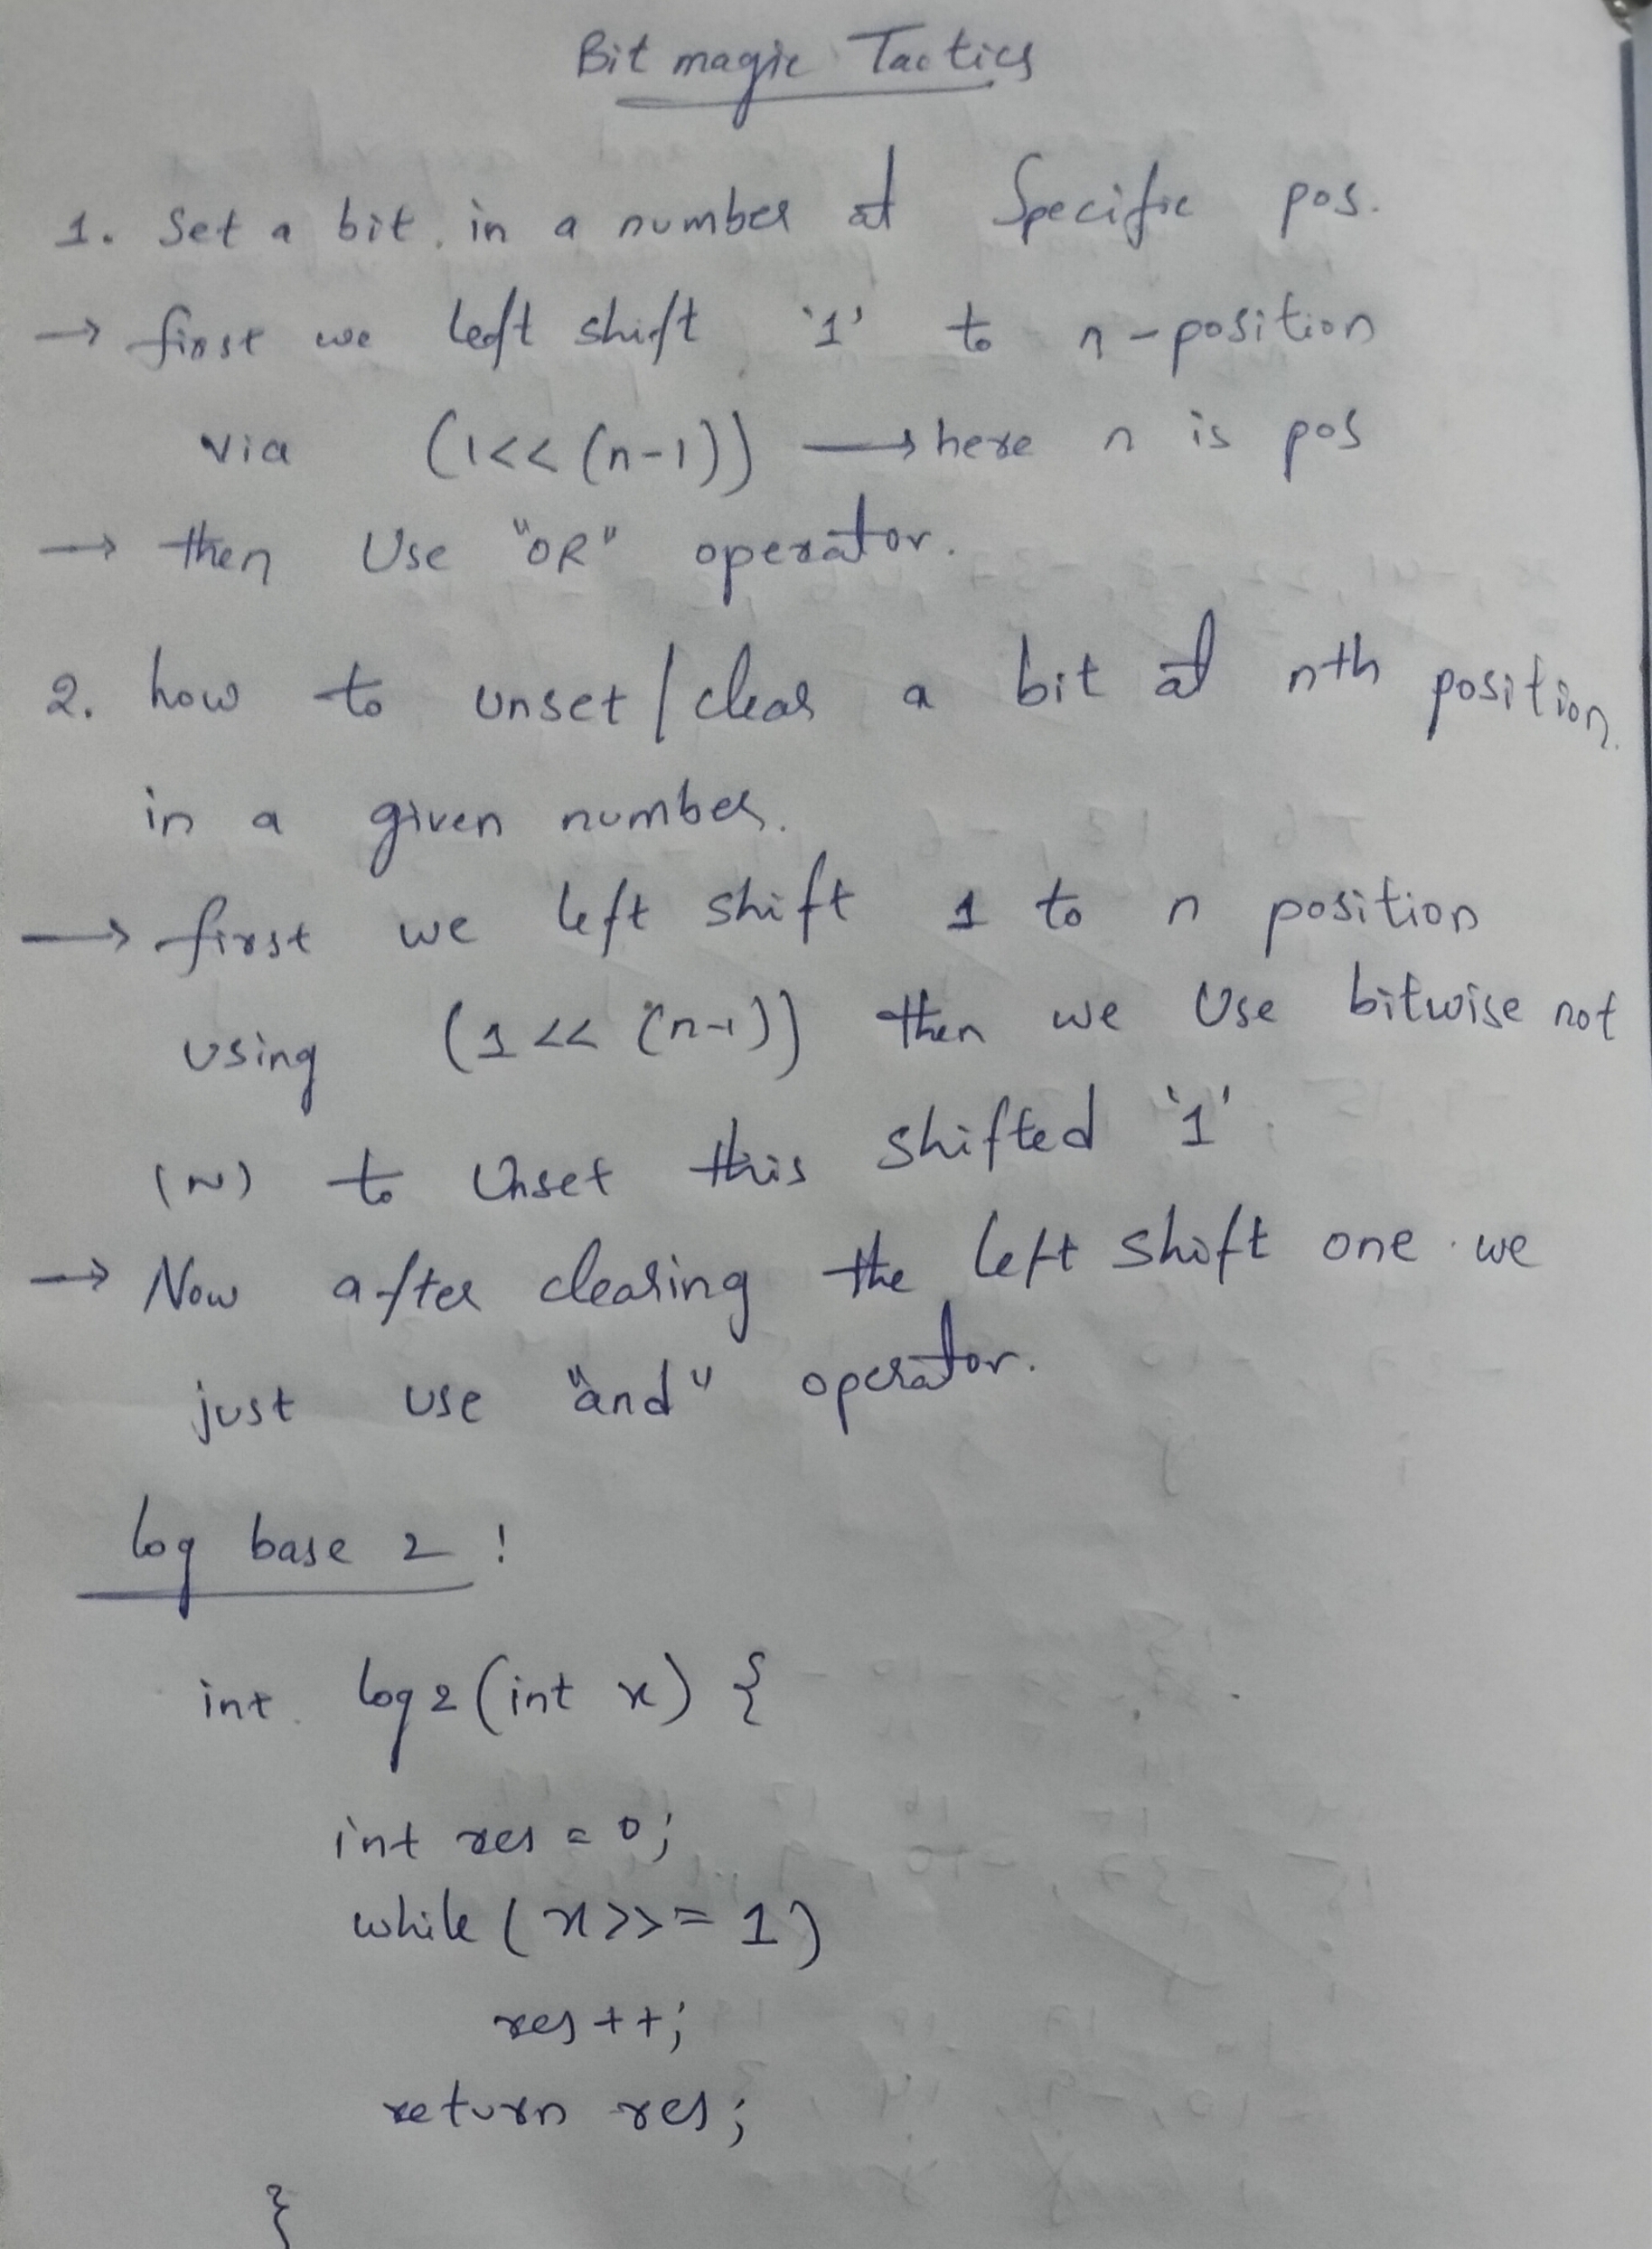 Bit magic Tactics
1. Set a bit in a number at Specific pos.
→ first we left shift '1' to n-position
via (1<<(n-1)) → here n is pos
→ then Use "OR" operator.
2. how to unset/clear a bit at nth position
in a given number.
→ first we left shift 1 to n position
using (1 << (n-1)) then we Use bitwise not
(~) to Unset this shifted '1'.
→ Now after clearing the left shift one we
just use "and" operator.
log base 2 :
int log2(int x) {
int res = 0;
while (x>>=1)
res++;
return res;
}